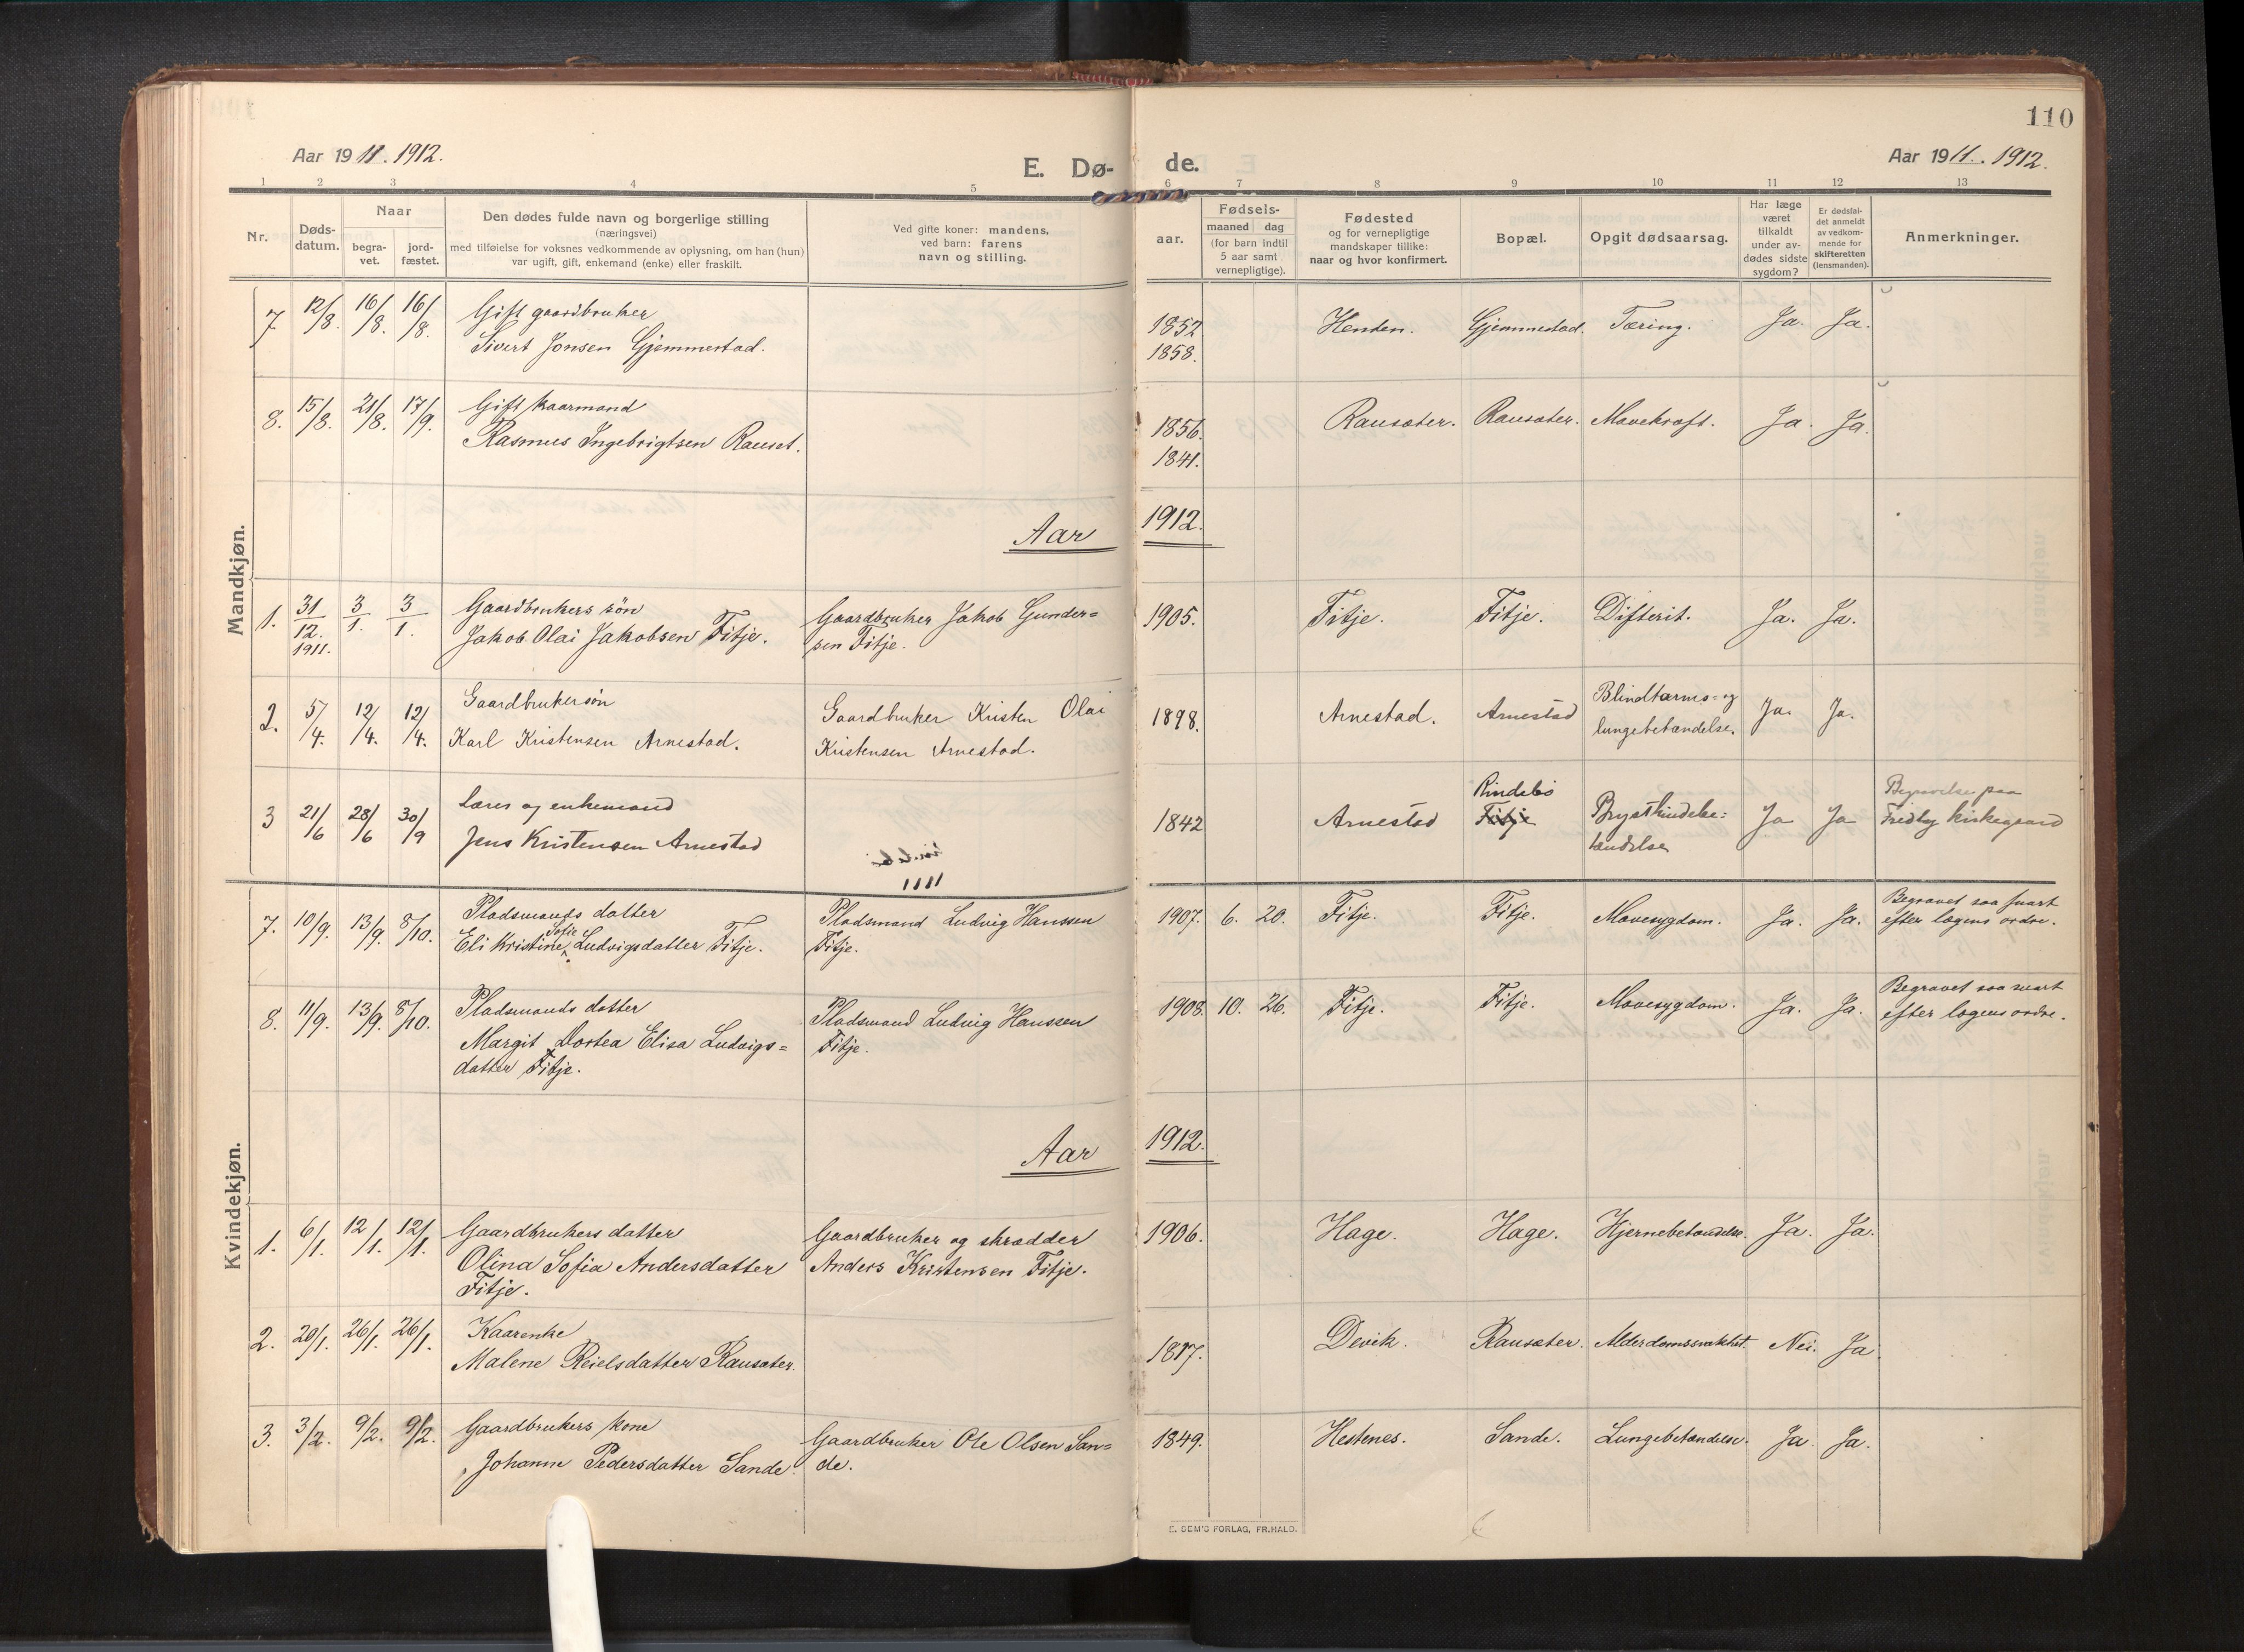 110
Aar 1911. 1912.
E. Dø-
de.
Aar 1911. 1912.
1 2 3 4 5 6 7 8 9 10 11 12 13
Nr.
Døds-
datum.
Naar
begra-
vet.
jord-
fæstet.
Den dødes fulde navn og borgerlige stilling
(næringsvei)
med tilføielse for voksnes vedkommende av oplysning, om han (hun)
var ugift, gift, enkemand (enke) eller fraskilt.
Ved gifte koner: mandens,
ved barn: farens
navn og stilling.
aar.
Fødsels-
maaned dag
(for barn indtil
5 aar samt
vernepligtige).
Fødested
og for vernepligtige
mandskaper tillike:
naar og hvor konfirmert.
Bopæl.
Opgit dødsaarsag.
Har læge
været
tilkaldt
under av-
dødes sidste
sygdom?
Er dødsfal-
det anmeldt
av vedkom-
mende for
skifteretten
(lensmanden).
Anmerkninger.
Mandkjøn.
7. 12/8. 16/8. 16/8. Gift gaardbruker
Sivert Jonsen Gjemmestad.
1852
1858.
Henden. Gjemmestad. Tæring. Ja. Ja.
8. 15/8. 21/8. 17/9. Gift kaarmand
Rasmus Ingebrigtsen Rauset.
1856.
1841.
Rausæter. Rausæter. Mavekræft. Ja. Ja.
Aar 1912.
1. 31/12. 1911. 3/1. 3/1. Gaardbrukers søn
Jakob Olai Jakobsen Fitje.
Gaardbruker Jakob Gunder=
sen Fitje.
1905. Fitje. Fitje. Difterit. Ja. Ja.
2. 5/4. 12/4. 12/4. Gaardbrukersøn
Karl Kristensen Arnestad.
Gaardbruker Kristen Olai
Kristensen Arnestad.
1898. Arnestad. Arnestad
Blindtarms- og
lungebetændelse.
Ja. Ja.
3 21/6 28/6 30/9 Lærer og enkemand
Jens Kristensen Arnestad
1842 Arnestad
Rindebø
Fitje
Brysthindebe=
tændelse
Ja Ja
Begravelse paa
kirkegaard
Kvindekjøn.
7. 10/9. 13/9. 8/10. Pladsmands datter
Eli Kristine Sofie Ludvigsdatter Fitje.
Pladsmand Ludvig Hanssen
Fitje.
1907. 6. 20. Fitje. Fitje. Mavesygdom. Ja. Ja.
Begravet saa snart
efter lægens ordre.
8. 11/9. 13/9. 8/10. Pladsmands datter
Margit Dortea Elisa Ludvigs=
datter Fitje.
Pladsmand Ludvig Hanssen
Fitje.
1908. 10. 26. Fitje. Fitje. Mavesygdom. Ja. Ja.
Begravet saa snart
efter lægens ordre.
Aar 1912.
1. 6/1. 12/1. 12/1. Gaardbrukers datter
Olina Sofia Andersdatter
Fitje.
Gaardbruker og skrædder
Anders Kristensen Fitje.
1906. Hage. Hage. Hjernebetændelse. Ja. Ja.
2. 20/1. 26/1. 26/1. Kaarenke
Malene Reielsdatter Rausæter.
1817. Devik. Rausæter. Alderdomssvakhet. Nei. Ja.
3. 3/2. 9/2. 9/2. Gaardbrukers kone
Johanne Pedersdatter Sande.
Gaardbruker Ole Olsen San=
de.
1849. Hestenes. Sande. Lungebetændelse. Ja. Ja.
E. SEM'S FORLAG, FR.HALD.